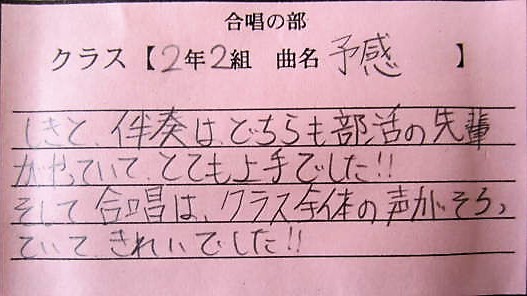 合唱の部
クラス【2年2組 曲名 予感 】
しきと、伴奏は、どちらも部活の先輩
がやっていて、とても上手でした!!
そして合唱は、クラス全体の声がそろっ
ていてきれいでした!!